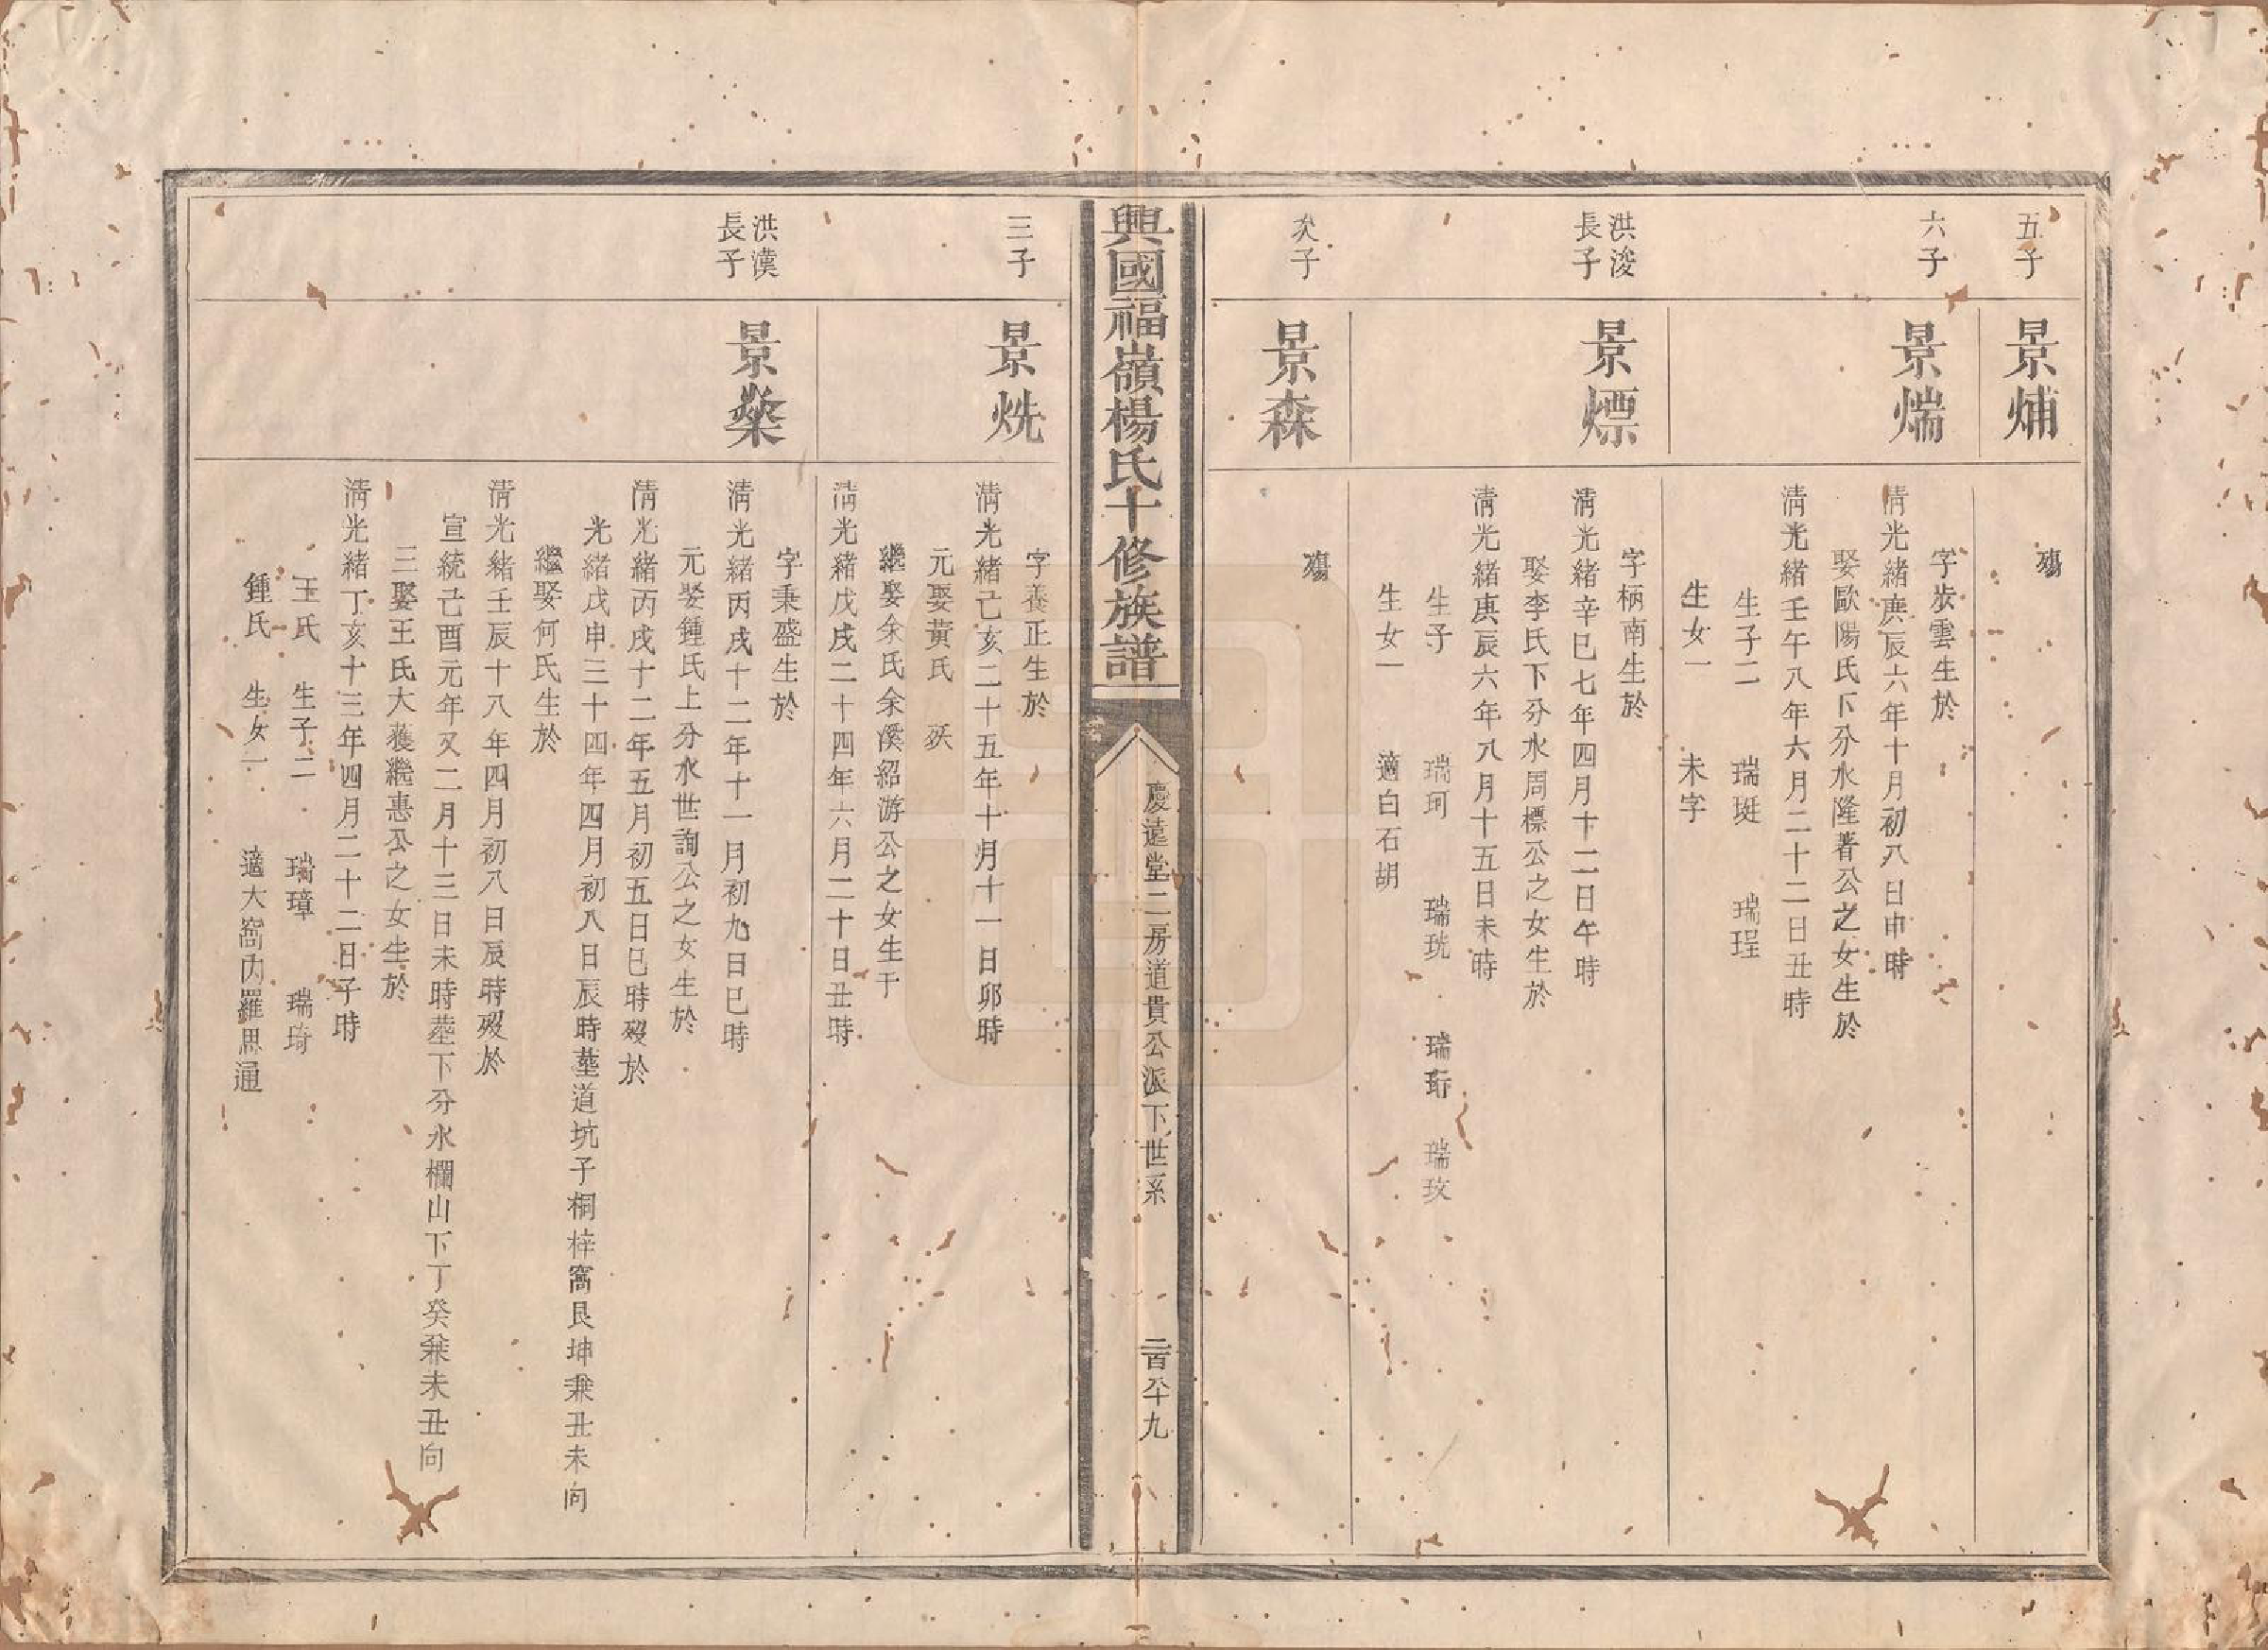 五子
景烳
殤
六子
景煓
字炭雲生於
清光緒庚辰六年十月初八日申時
娶歐陽氏下分水隆著公之女生於
清光緒壬午八年六月二十二日丑時
生子二 瑞珽 瑞珵
生女一 未字
洪浚
長子
景熛
字柄南生於
清光緒辛巳七年四月十二日午時
娶李氏下分水周標公之女生於
清光緒庚辰六年八月十五日未時
生子 瑞珂 瑞珖 瑞珩 瑞玟
生女一 適白石胡
次子
景森
殤
興國福嶺楊氏十修族譜
慶遠堂二房道貴公派下世系
二百八十九
三子
景烍
字養正生於
清光緒己亥二十五年十月十一日卯時
元娶黃氏 殀
繼娶余氏余溪紹游公之女生于
清光緒戊戌二十四年六月二十日丑時
洪漢
長子
景燊
字秉盛生於
清光緒丙戌十二年十一月初九日巳時
元娶鍾氏上分水世詢公之女生於
清光緒丙戌十二年五月初五日巳時歿於
光緒戊申三十四年四月初八日辰時塟道坑子桐梓窩艮坤兼丑未向
繼娶何氏生於
清光緒壬辰十八年四月初八日辰時歿於
宣統己酉元年又二月十三日未時塟下分水欄山下丁癸兼未丑向
三娶王氏大獲繼惠公之女生於
清光緒丁亥十三年四月二十二日子時
王氏 生子二 瑞璋 瑞琦
鍾氏 生女一 適大窩內羅思通